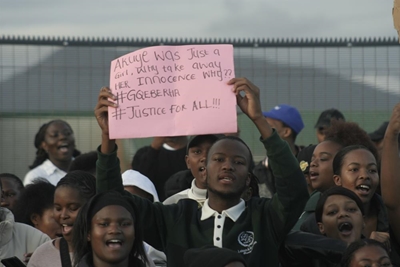 AKUYE WAS JUST A
GIRL, WHY TAKE AWAY
HER INNOCENCE WHY??
#GQEBERHA
#JUSTICE FOR ALL!!!